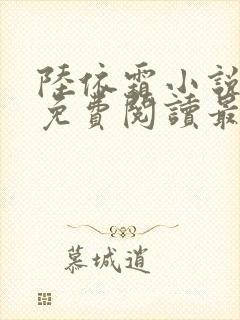 陸依霜小說
免費閱讀最
慕城逍